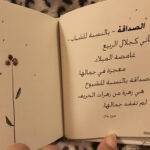 الصداقة - بالنسبة للشباب
تأتي كجلال الربيع
غامضة الميلاد
معجزة في جمالها
الصداقة بالنسبة للشيوخ
هي زهرة من زهرات الخريف
لم تفقد جمالها.